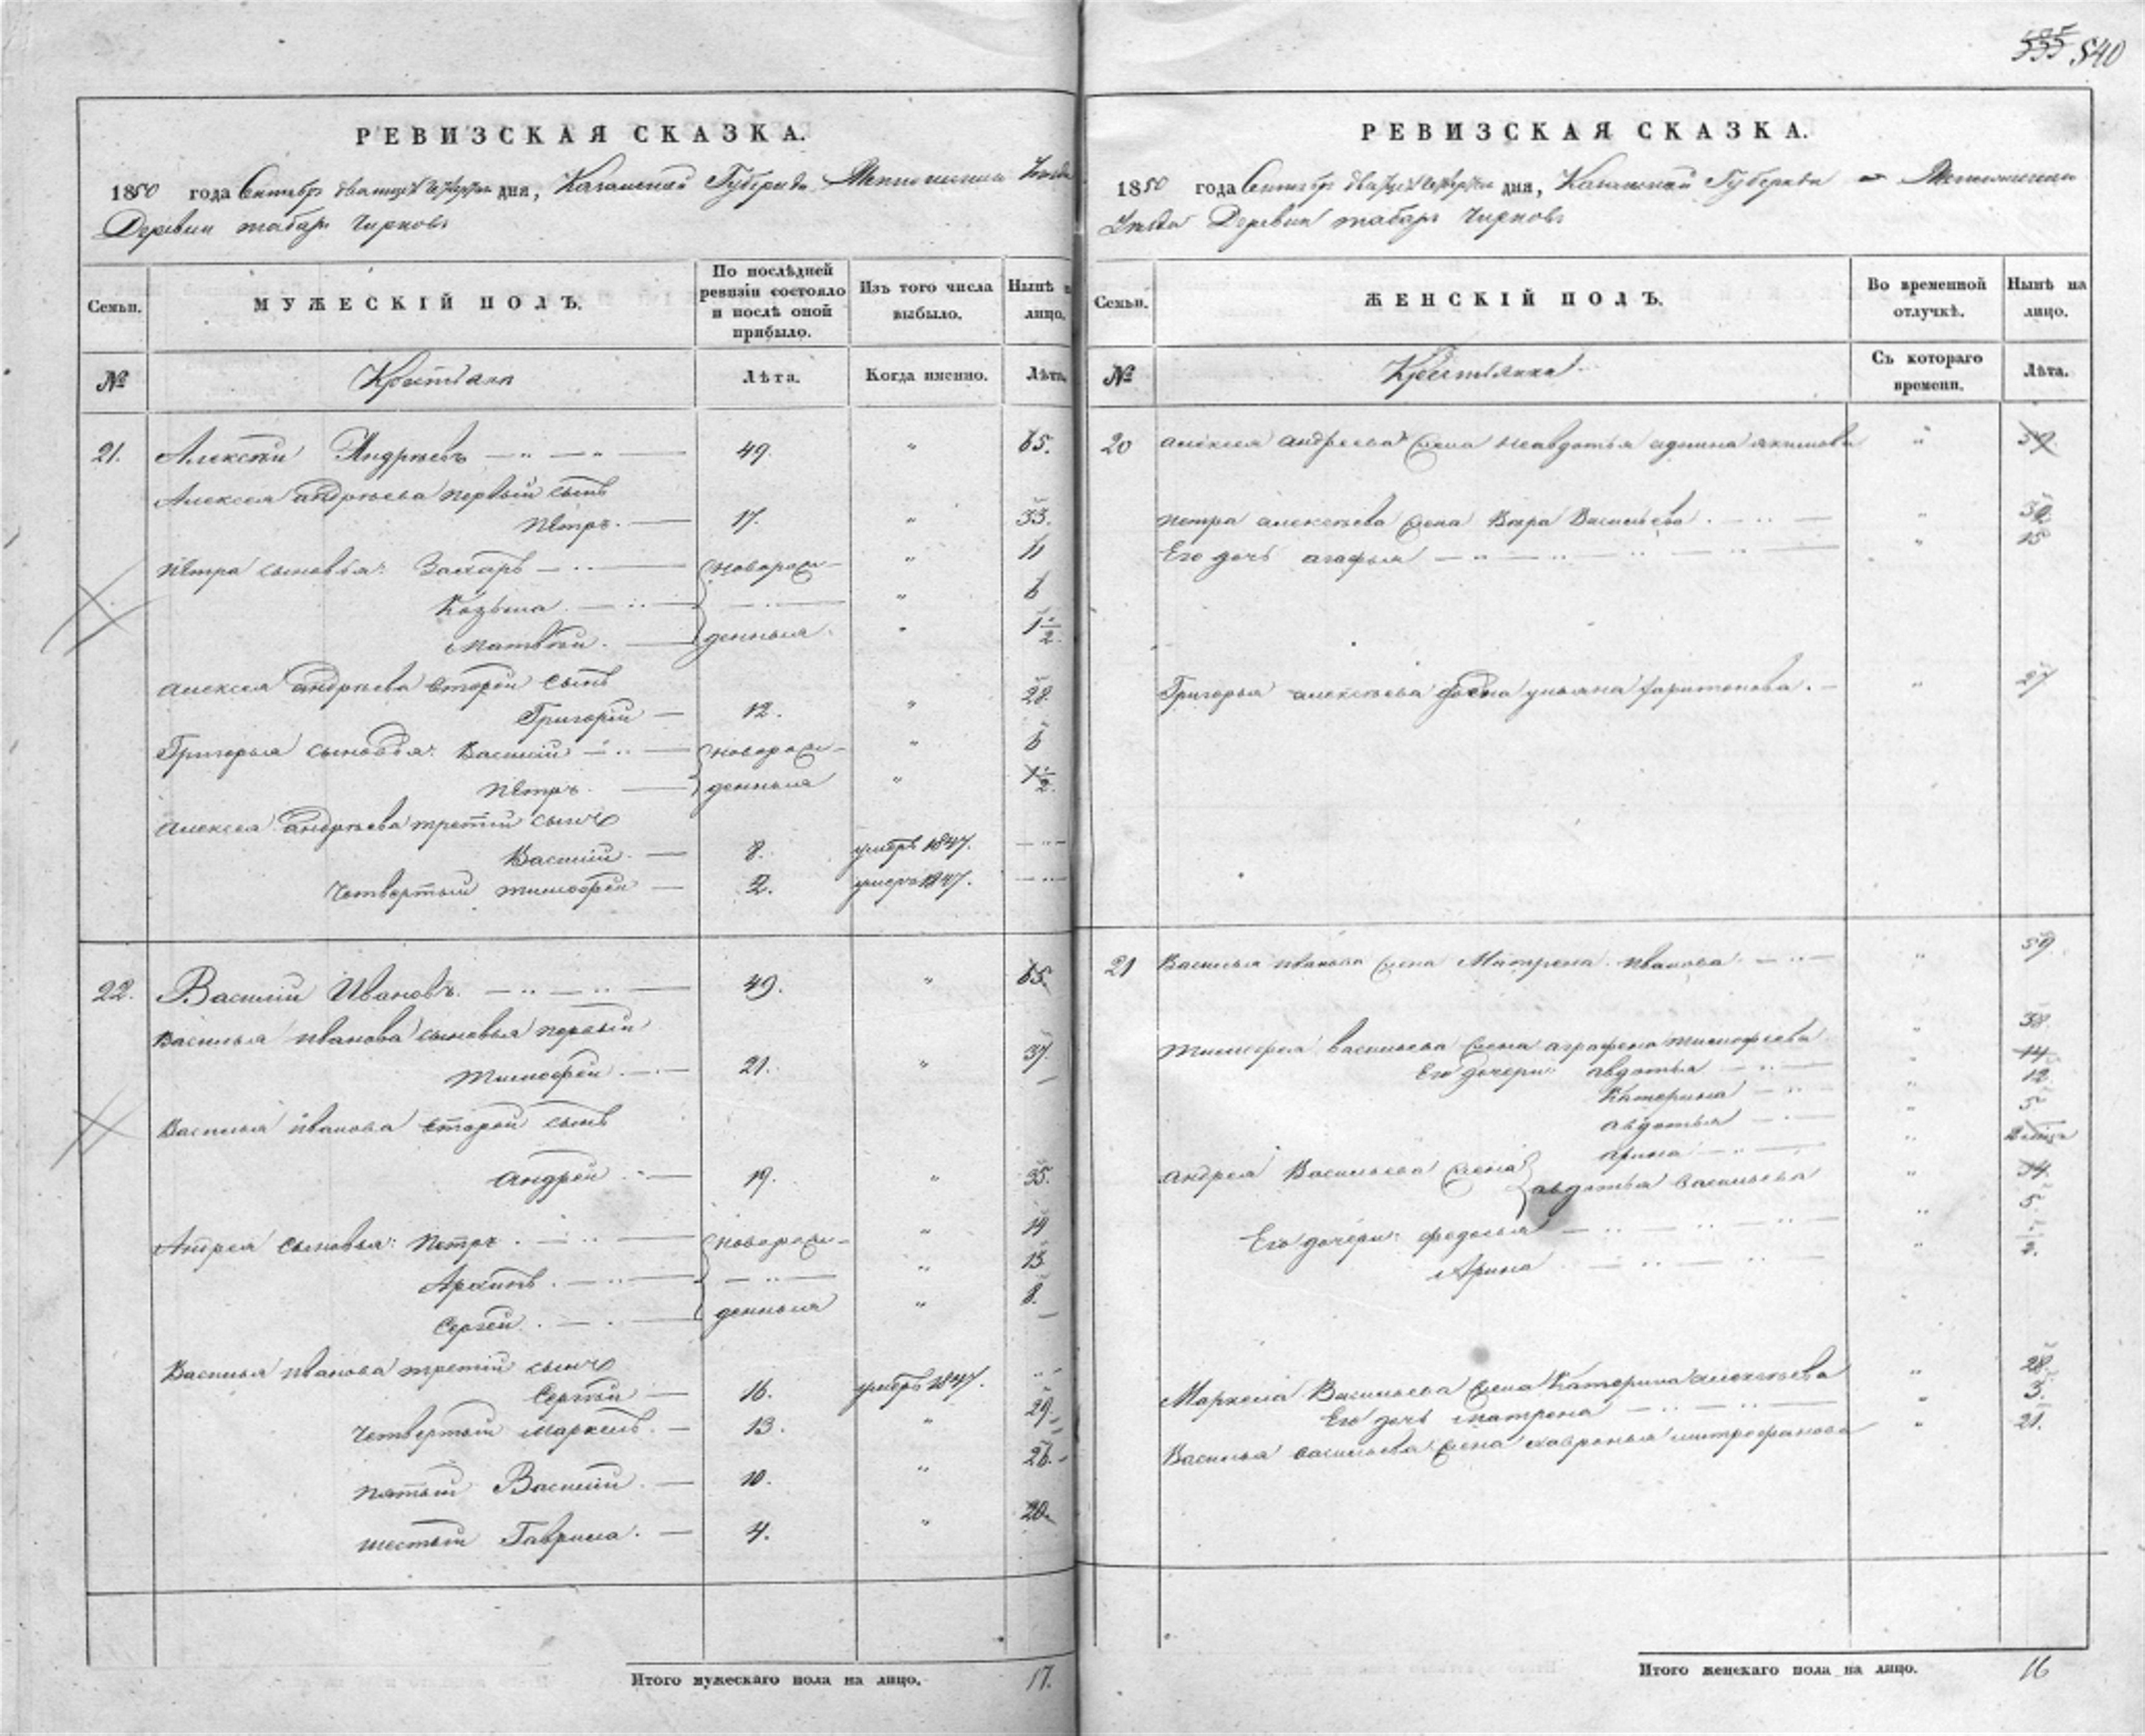 555 840
РЕВИЗСКАЯ СКАЗКА.
1850 года Сентябр дватцеть четвертог дня, Казанской Губернiи Уезда
Деревни табар Чирковъ
Семьи.
МУЖЕСКІЙ ПОЛЪ.
По послѣдней ревизіи состояло и послѣ оной прибыло.
Изъ того числа выбыло.
Нынѣ лицо.
№
Крестьяна
Лѣта.
Когда именно.
Лѣта.
21. Алексѣй Андрѣевъ 49. " 65.
Алексея андрѣева первый сынъ
Пётръ. 17. " 33.
Пётра сыновья: Захаръ новорож- " 11
Козьма. " 6
Матвѣй. денныя. " 1 1/2
алексея андрѣева второй сынъ
Григорій 12. " 28.
Григорья сыновья: Василій новорож- " 6
Пётръ денныя " 1 1/2
алексея андрѣева третій сынъ
Василій. 8. умеръ 1847.
Четвертый тимофей 2. умеръ 1847.
22. Василій Ивановъ. 49. " 65.
Василья иванова сыновья первый
тимофей. 21. " 37.
Василья иванова второй сынъ
андрей 19. " 35.
Андрея сыновья: Петръ новорож- " 14
Архипъ. " 13
Сергей. денныя " 8.
Василья иванова третій сынъ
Сергѣй 16. умеръ 1847.
Четвертый маркелъ. 13. " 29.
пятый Василій. 10. " 26.
шестый Гаврила. 4. " 20.
Итого мужескаго пола на лицо. 17.
РЕВИЗСКАЯ СКАЗКА.
1850 года Сентябр дватцеть четвертог дня, Казанской Губернiи
Уезда Деревни табар Чирковъ
Семьи.
ЖЕНСКІЙ ПОЛЪ.
Во временной отлучкѣ.
Нынѣ на лицо.
№
Крестьянки
Съ котораго времени.
Лѣта.
20 алексея андреева жена " 59.
петра алексѣева жена Вера Васильева. " 32.
Его дочь агафья " 15
Григорья алексѣева жена ульяна харитонова. " 27
21 Василья иванова жена Матрена иванова. " 59.
тимофея васильева жена аграфена тимофеева " 38.
Его дочери: авдотья " 14
Катерина " 12
авдотья " 5
арина "
андрея Васильева жена авдотья васильева " 34.
Его дочери: федосья " 5.
Арина "
Маркела Васильева жена Катерина алексѣева " 28.
Его дочь матрена " 3.
Василья васильева жена хавронья митрофанова " 21.
Итого женскаго пола на лицо. 16